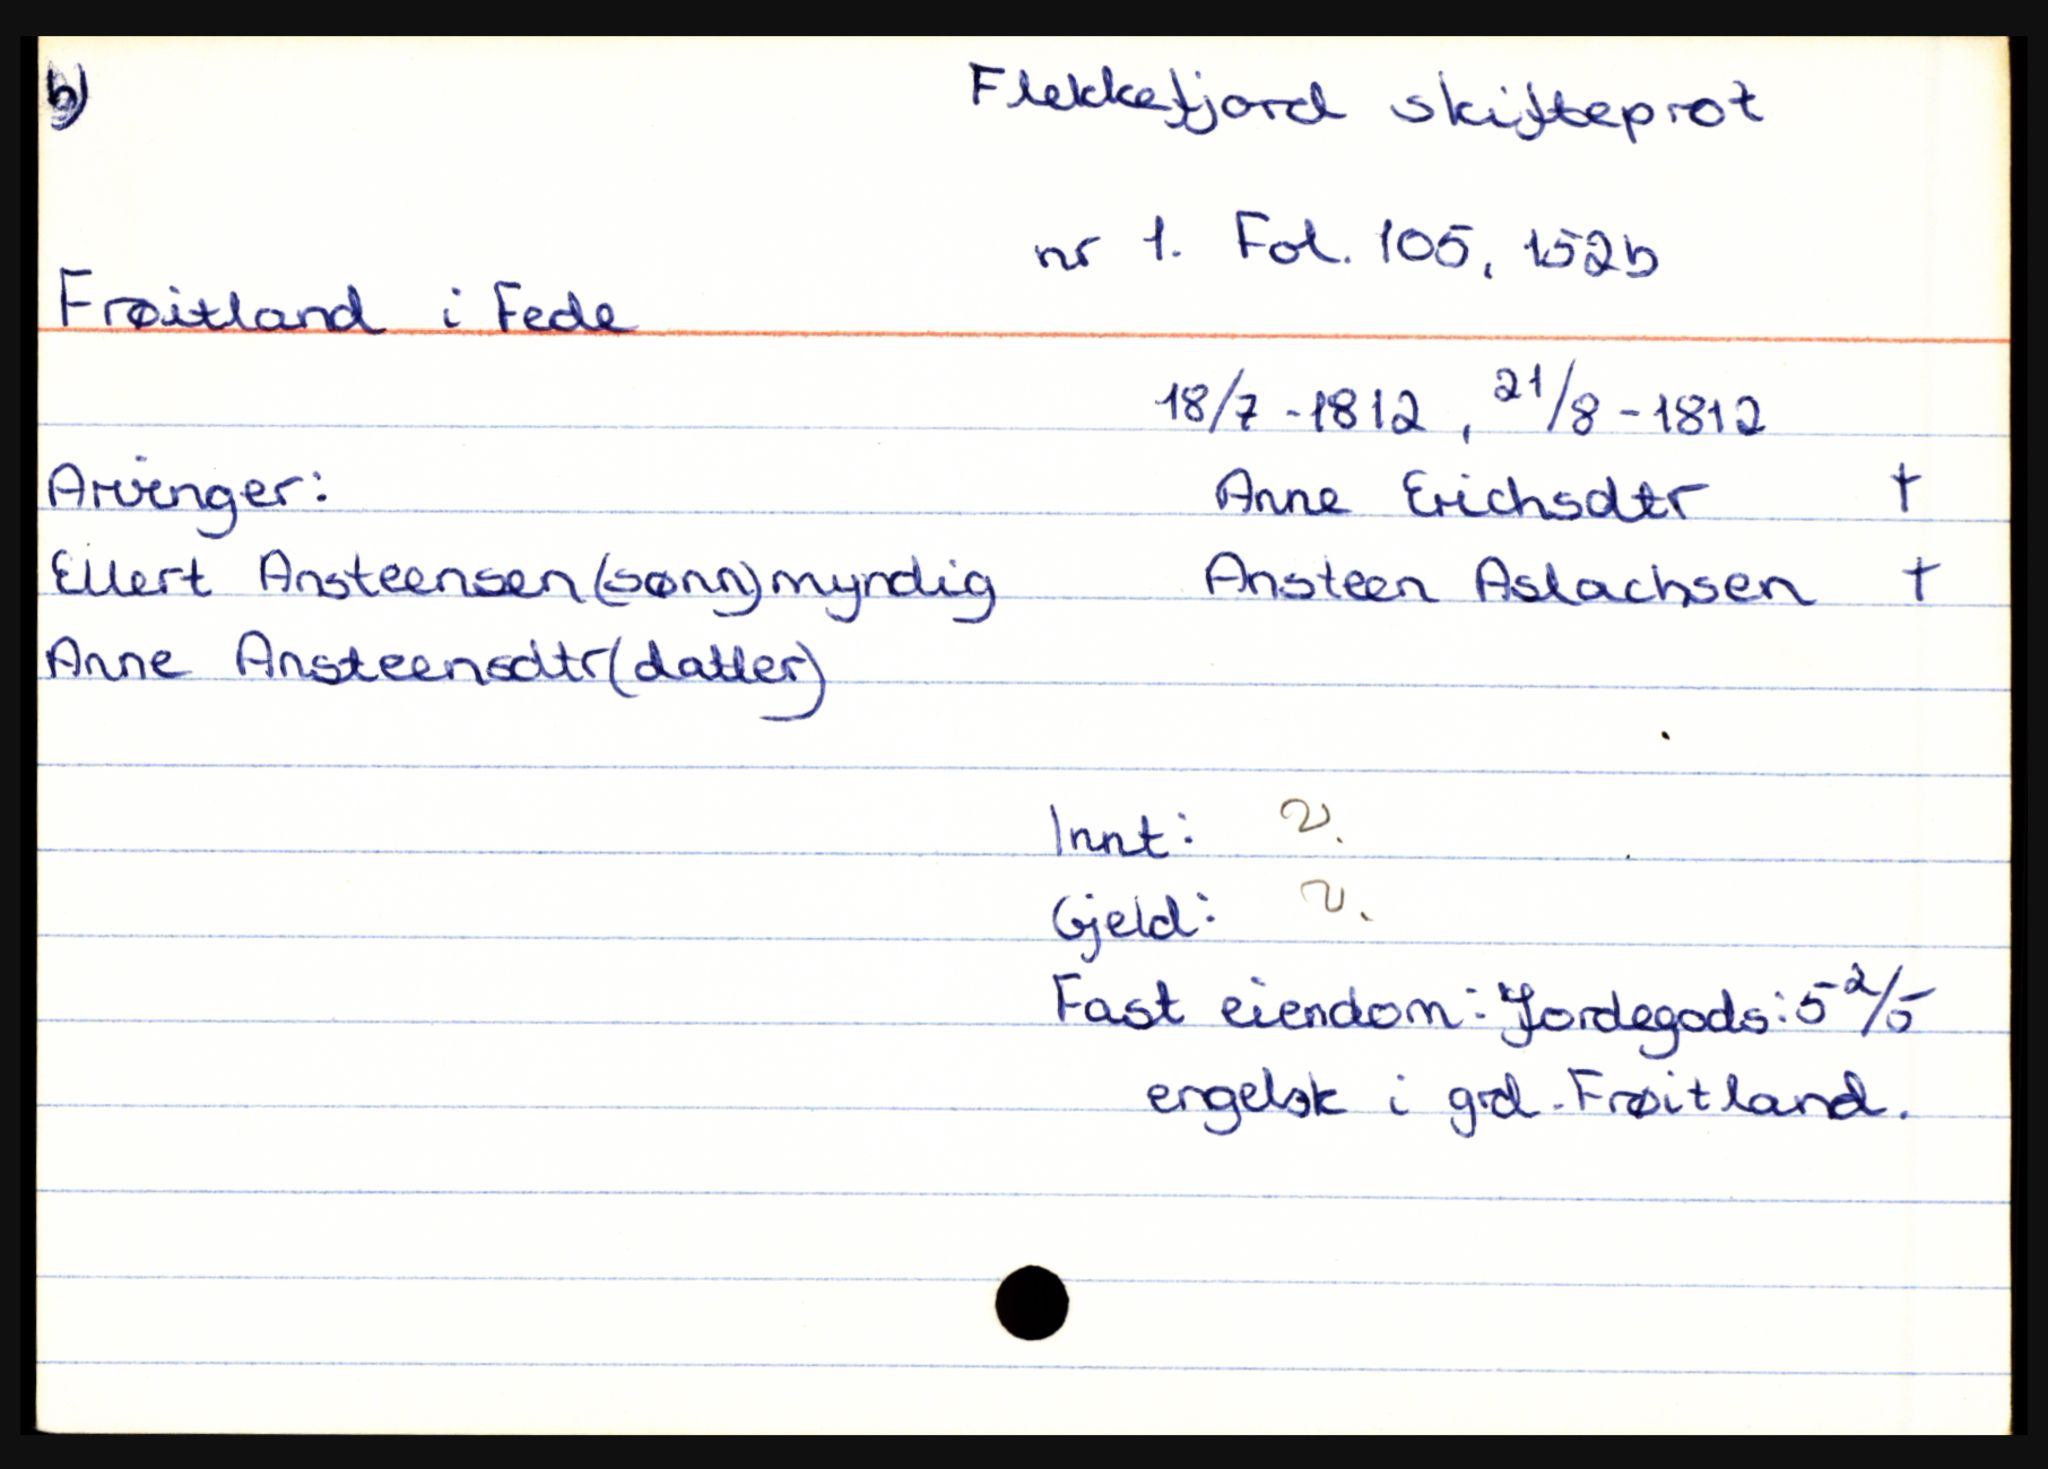 b)
Flekkefjord skifteprot
nr 1. Fol. 105, 152b
Frøitland i Fede
18/7-1812, 21/8-1812
Arvinger:
Anne Erichsdtr †
Ellert Ansteensen (sønn) myndig
Ansteen Aslachsen †
Anne Ansteensdtr (datter)
Innt: v.
Gjeld: v.
Fast eiendom: Jordegods: 5 2/5
engelsk i grd. Frøitland.